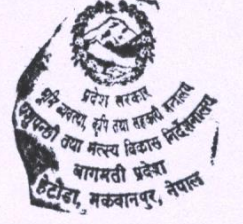 प्रदेश सरकार
भूमि व्यवस्था, कृषि तथा सहकारी मन्त्रालय
पशुपन्छी तथा मत्स्य विकास निर्देशनालय
बागमती प्रदेश
हेटौडा, मकवानपुर, नेपाल